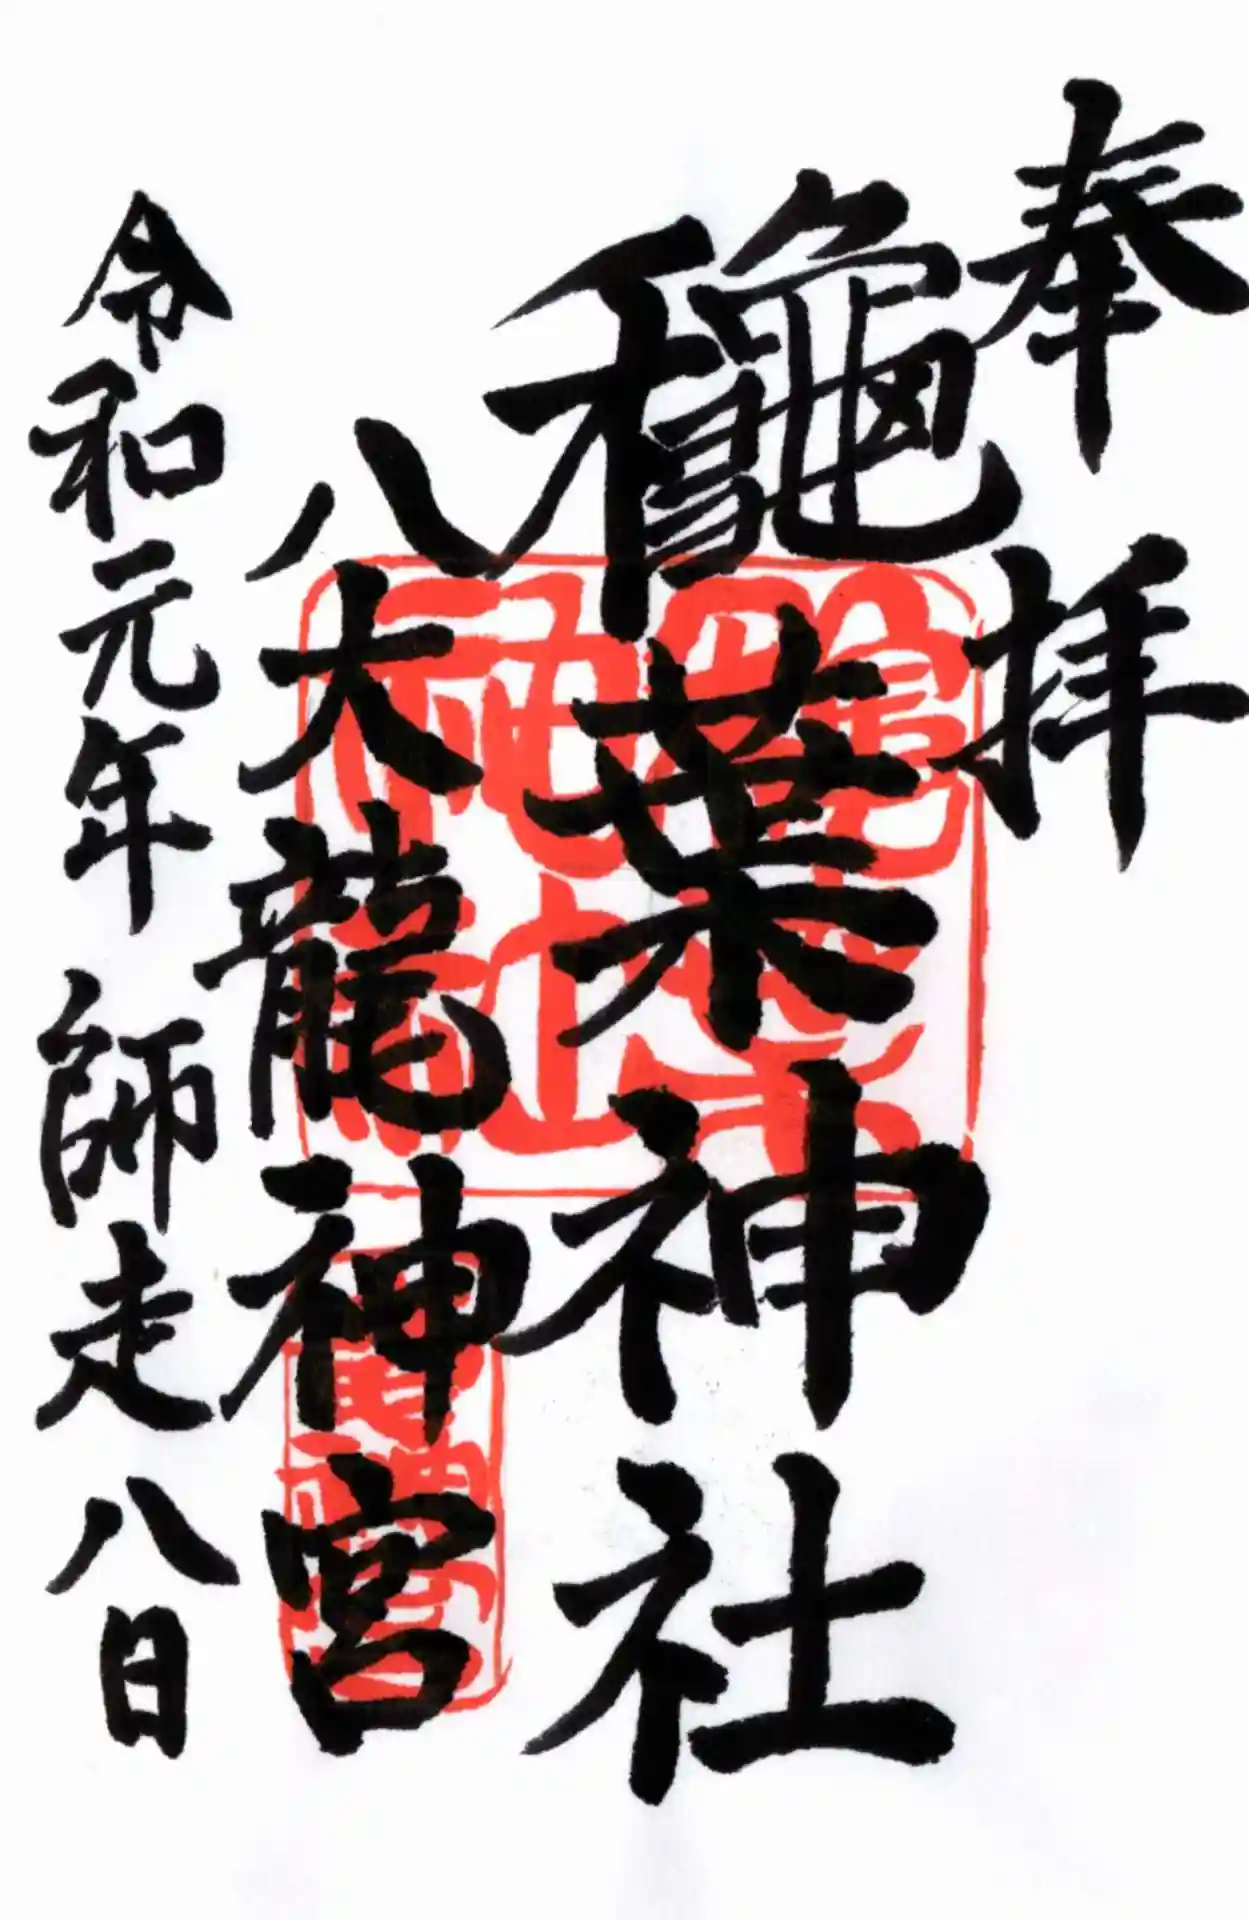 奉拝
龝葉神社
八大龍神宮
令和元年 師走 八日